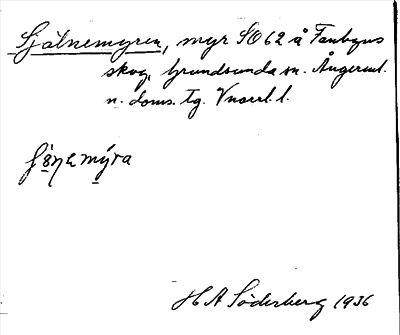 Själnemyren, myr SO 62 å Fanbyns
skog, Grundsunda sn. Ångerml.
n. doms. tg. Vnorrl. l.
H A Söderberg 1936